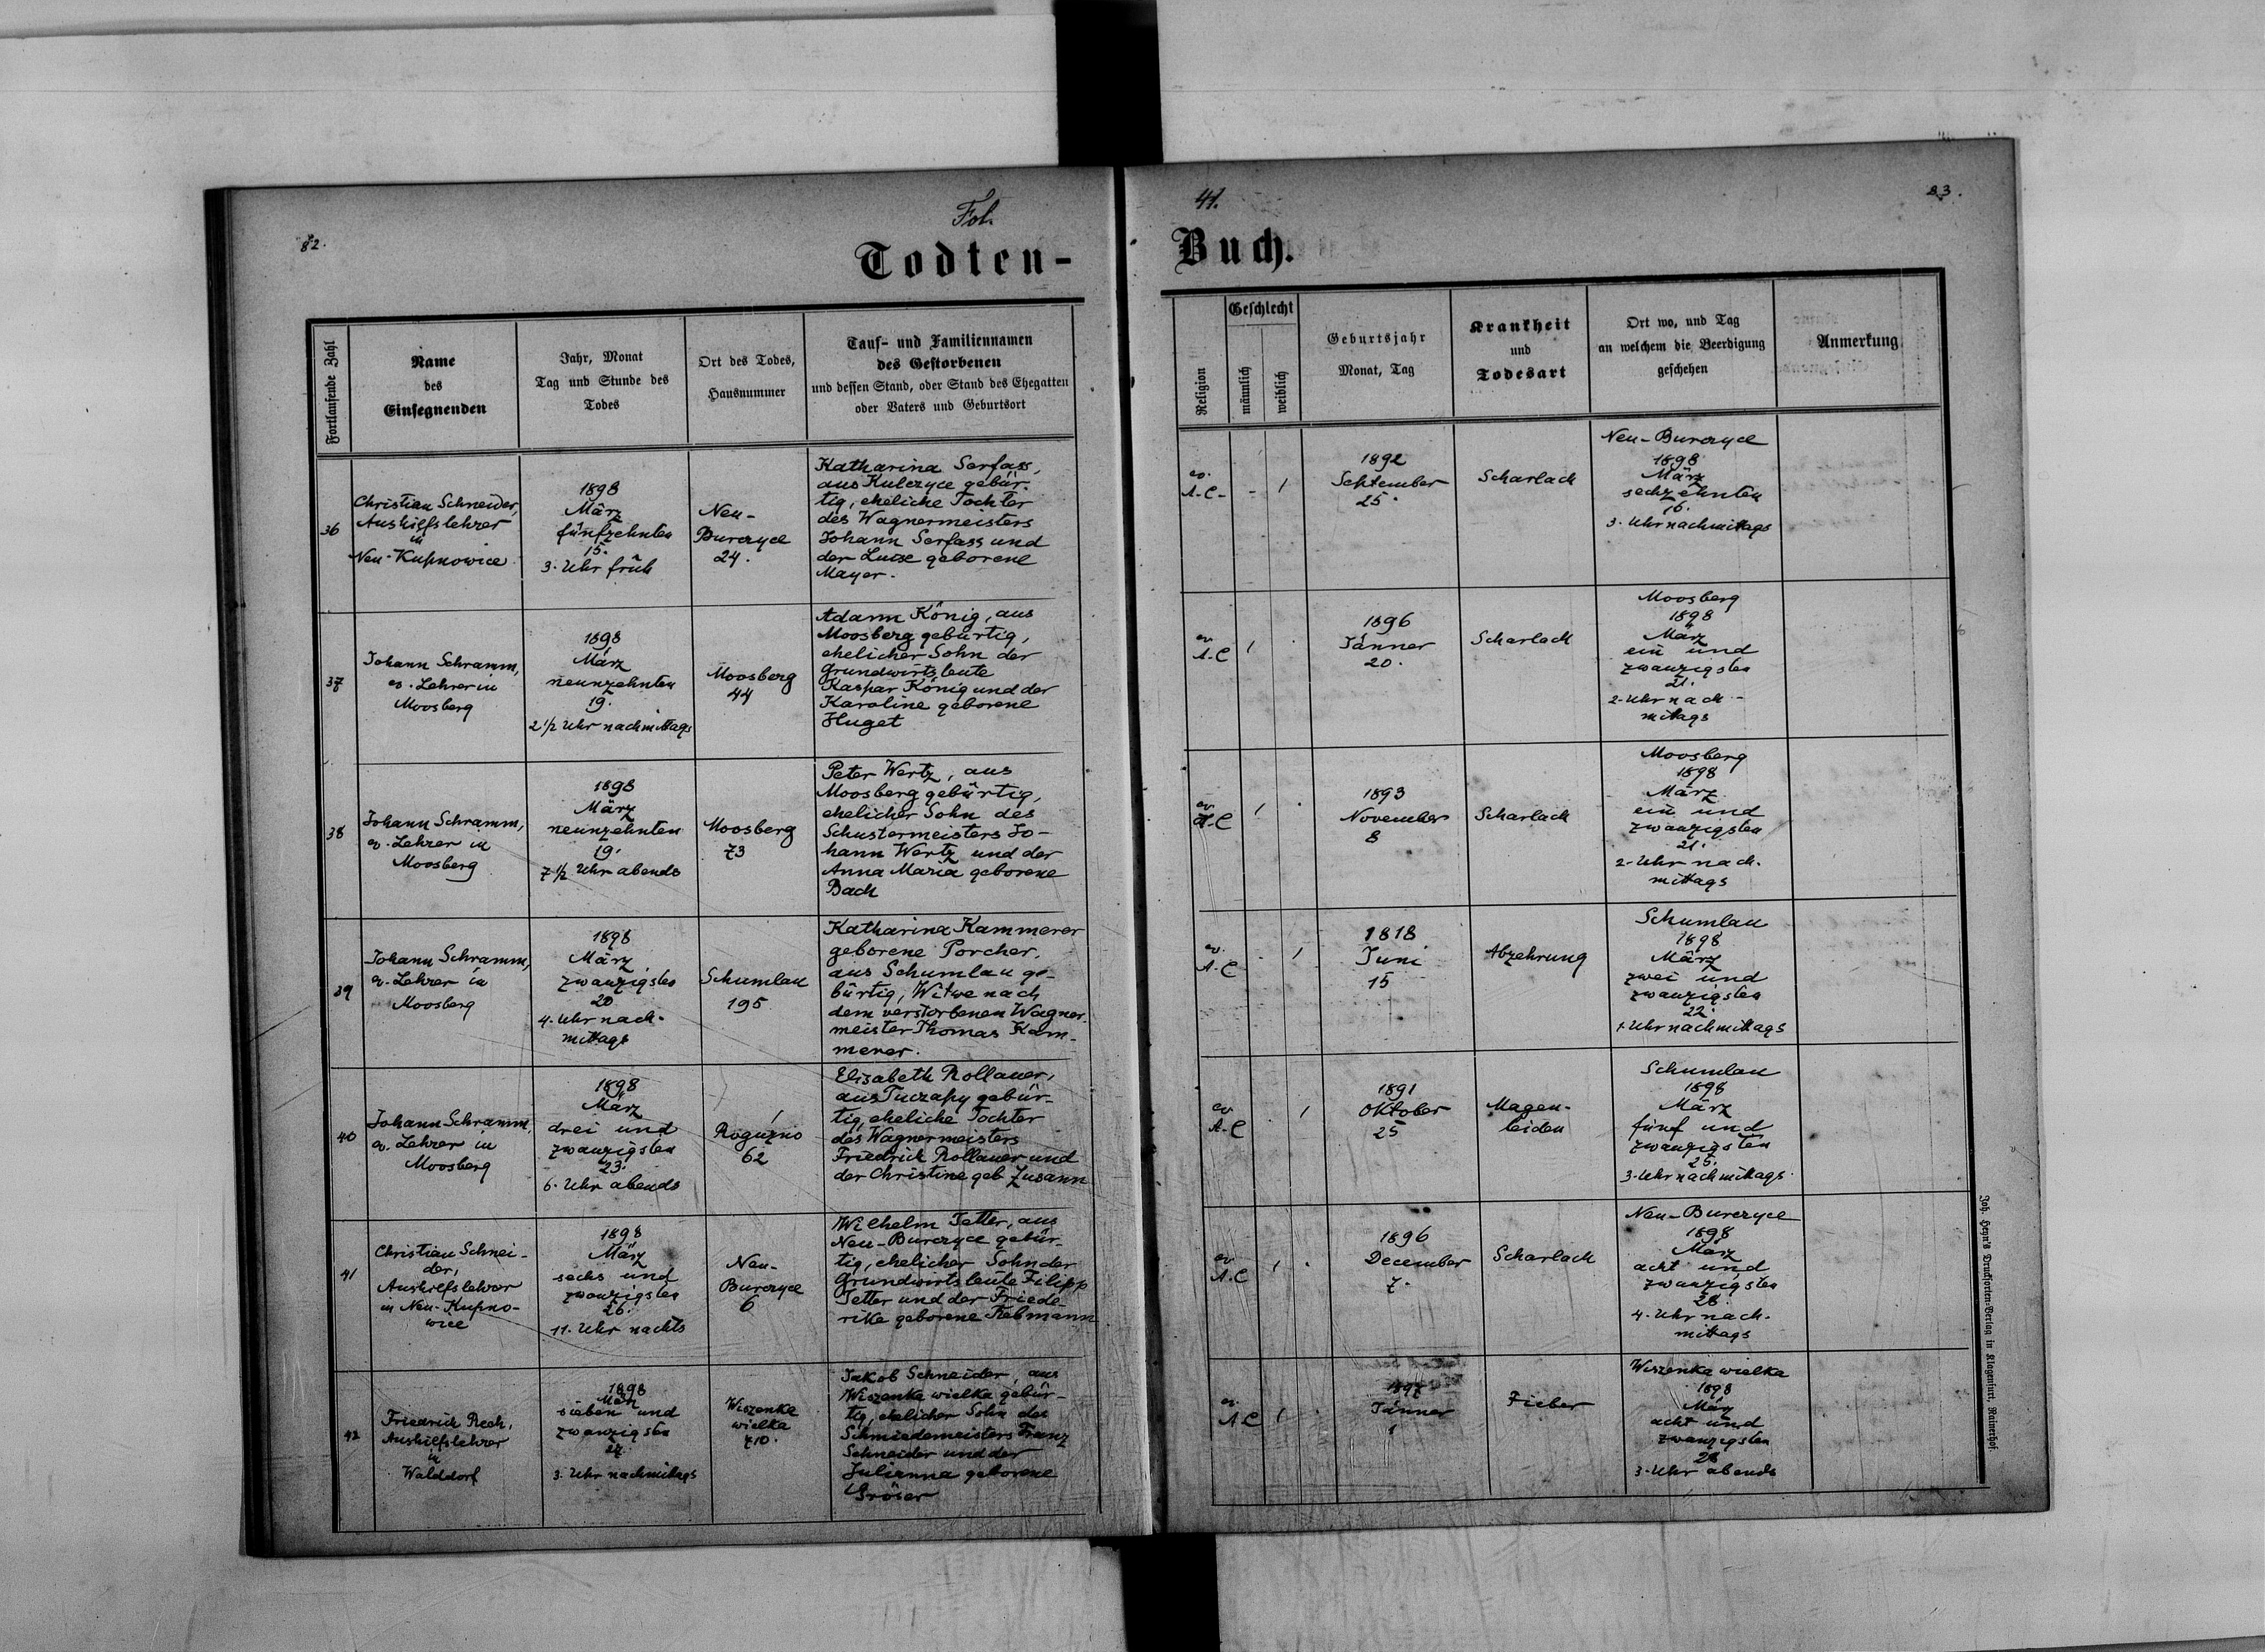 82.
Fol.
41.
83.
Todten-
Buch.
Fortlaufende Zahl
Name
des
Einsegnenden
Jahr, Monat
Tag und Stunde des
Todes
Ort des Todes,
Hausnummer
Tauf- und Familiennamen
des Gestorbenen
und dessen Stand, oder Stand des Ehegatten
oder Vaters und Geburtsort
Religion
Geschlecht
männlich
weiblich
Geburtsjahr
Monat, Tag
Krankheit
und
Todesart
Ort wo, und Tag
an welchem die Beerdigung
geschehen
Anmerkung
36
Christian Schneider,
Aushilfslehrer
in
Neu-Kupnowice
1898
März
fünfzehnten
15.
3. Uhr früh
Neu-
Burczyce
24.
Katharina Serfass,
aus Kulczyce gebür-
tig, eheliche Tochter
des Wagnermeisters
Johann Serfass und
der Luise geborene
Mayer.
ev.
A.C.
- /
1892
September
25.
Scharlach
Neu-Burczyce
1898
März
sechzehnten
16.
3. Uhr nachmittags
37
Johann Schramm,
ev. Lehrer in
Moosberg
1898
März
neunzehnten
19.
2 1/2 Uhr nachmittags
Moosberg
44
Adam König, aus
Moosberg gebürtig,
ehelicher Sohn der
Grundwirtsleute
Kaspar König und der
Karoline geborene
Huget
ev.
A.C
/ .
1896
Jänner
20.
Scharlach
Moosberg
1898
März
ein und
zwanzigsten
21.
2. Uhr nach-
mittags
38
Johann Schramm,
ev. Lehrer in
Moosberg
1898
März
neunzehnten
19.
7 1/2 Uhr abends
Moosberg
73
Peter Wertz, aus
Moosberg gebürtig,
ehelicher Sohn des
Schustermeisters Jo-
hann Wertz und der
Anna Maria geborene
Bach
ev.
A.C
/ .
1893
November
8
Scharlach
Moosberg
1898
März
ein und
zwanzigsten
21.
2. Uhr nach-
mittags
39
Johann Schramm,
ev. Lehrer in
Moosberg
1898
März
zwanzigsten
20
4. Uhr nach-
mittags
Schumlau
195
Katharina Kammerer
geborene Porcher,
aus Schumlau ge-
bürtig, Witwe nach
dem verstorbenen Wagner-
meister Thomas Kam-
merer.
ev.
A.C
. /
1818
Juni
15
Abzehrung
Schumlau
1898
März
zwei und
zwanzigsten
22.
1 Uhr nachmittags
40
Johann Schramm,
ev. Lehrer in
Moosberg
1898
März
drei und
zwanzigsten
23.
6. Uhr abends
Roguzno
62
Elisabeth Rollauer,
aus Tuczapy gebür-
tig, eheliche Tochter
des Wagnermeisters
Friedrich Rollauer und
der Christine geb. Zusann
ev.
A.C
/
1891
Oktober
25
Magen-
leiden
Schumlau
1898
März
fünf und
zwanzigsten
25.
3. Uhr nachmittags
41
Christian Schnei-
der,
Aushilfslehrer
in Neu-Kupno-
wice
1898
März
sechs und
zwanzigsten
26.
11. Uhr nachts
Neu-
Burczyce
6
Wilhelm Jetter, aus
Neu-Burczyce gebür-
tig, ehelicher Sohn der
Grundwirtsleute Filipp
Jetter und der Friede-
rike geborene Rebmann
ev
A.C
/ .
1896
December
7.
Scharlach
Neu-Burczyce
1898
März
acht und
zwanzigsten
28.
4. Uhr nach-
mittags
42
Friedrich Rech,
Aushilfslehrer
in
Walddorf
1898
März
sieben und
zwanzigsten
27
3. Uhr nachmittags
Wiszenka
wielka
710.
Jakob Schneider, aus
Wiszenka wielka gebür-
tig, ehelicher Sohn des
Schmiedemeisters Franz
Schneider und der
Julianna geborene
Gröser
ev.
A.C
/ .
1897
Jänner
1
Fieber
Wiszenka wielka
1898
März
acht und
zwanzigsten
28
3. Uhr abends
Joh. Heyn's Drucksorten-Verlag in Klagenfurt, Rainerhof.